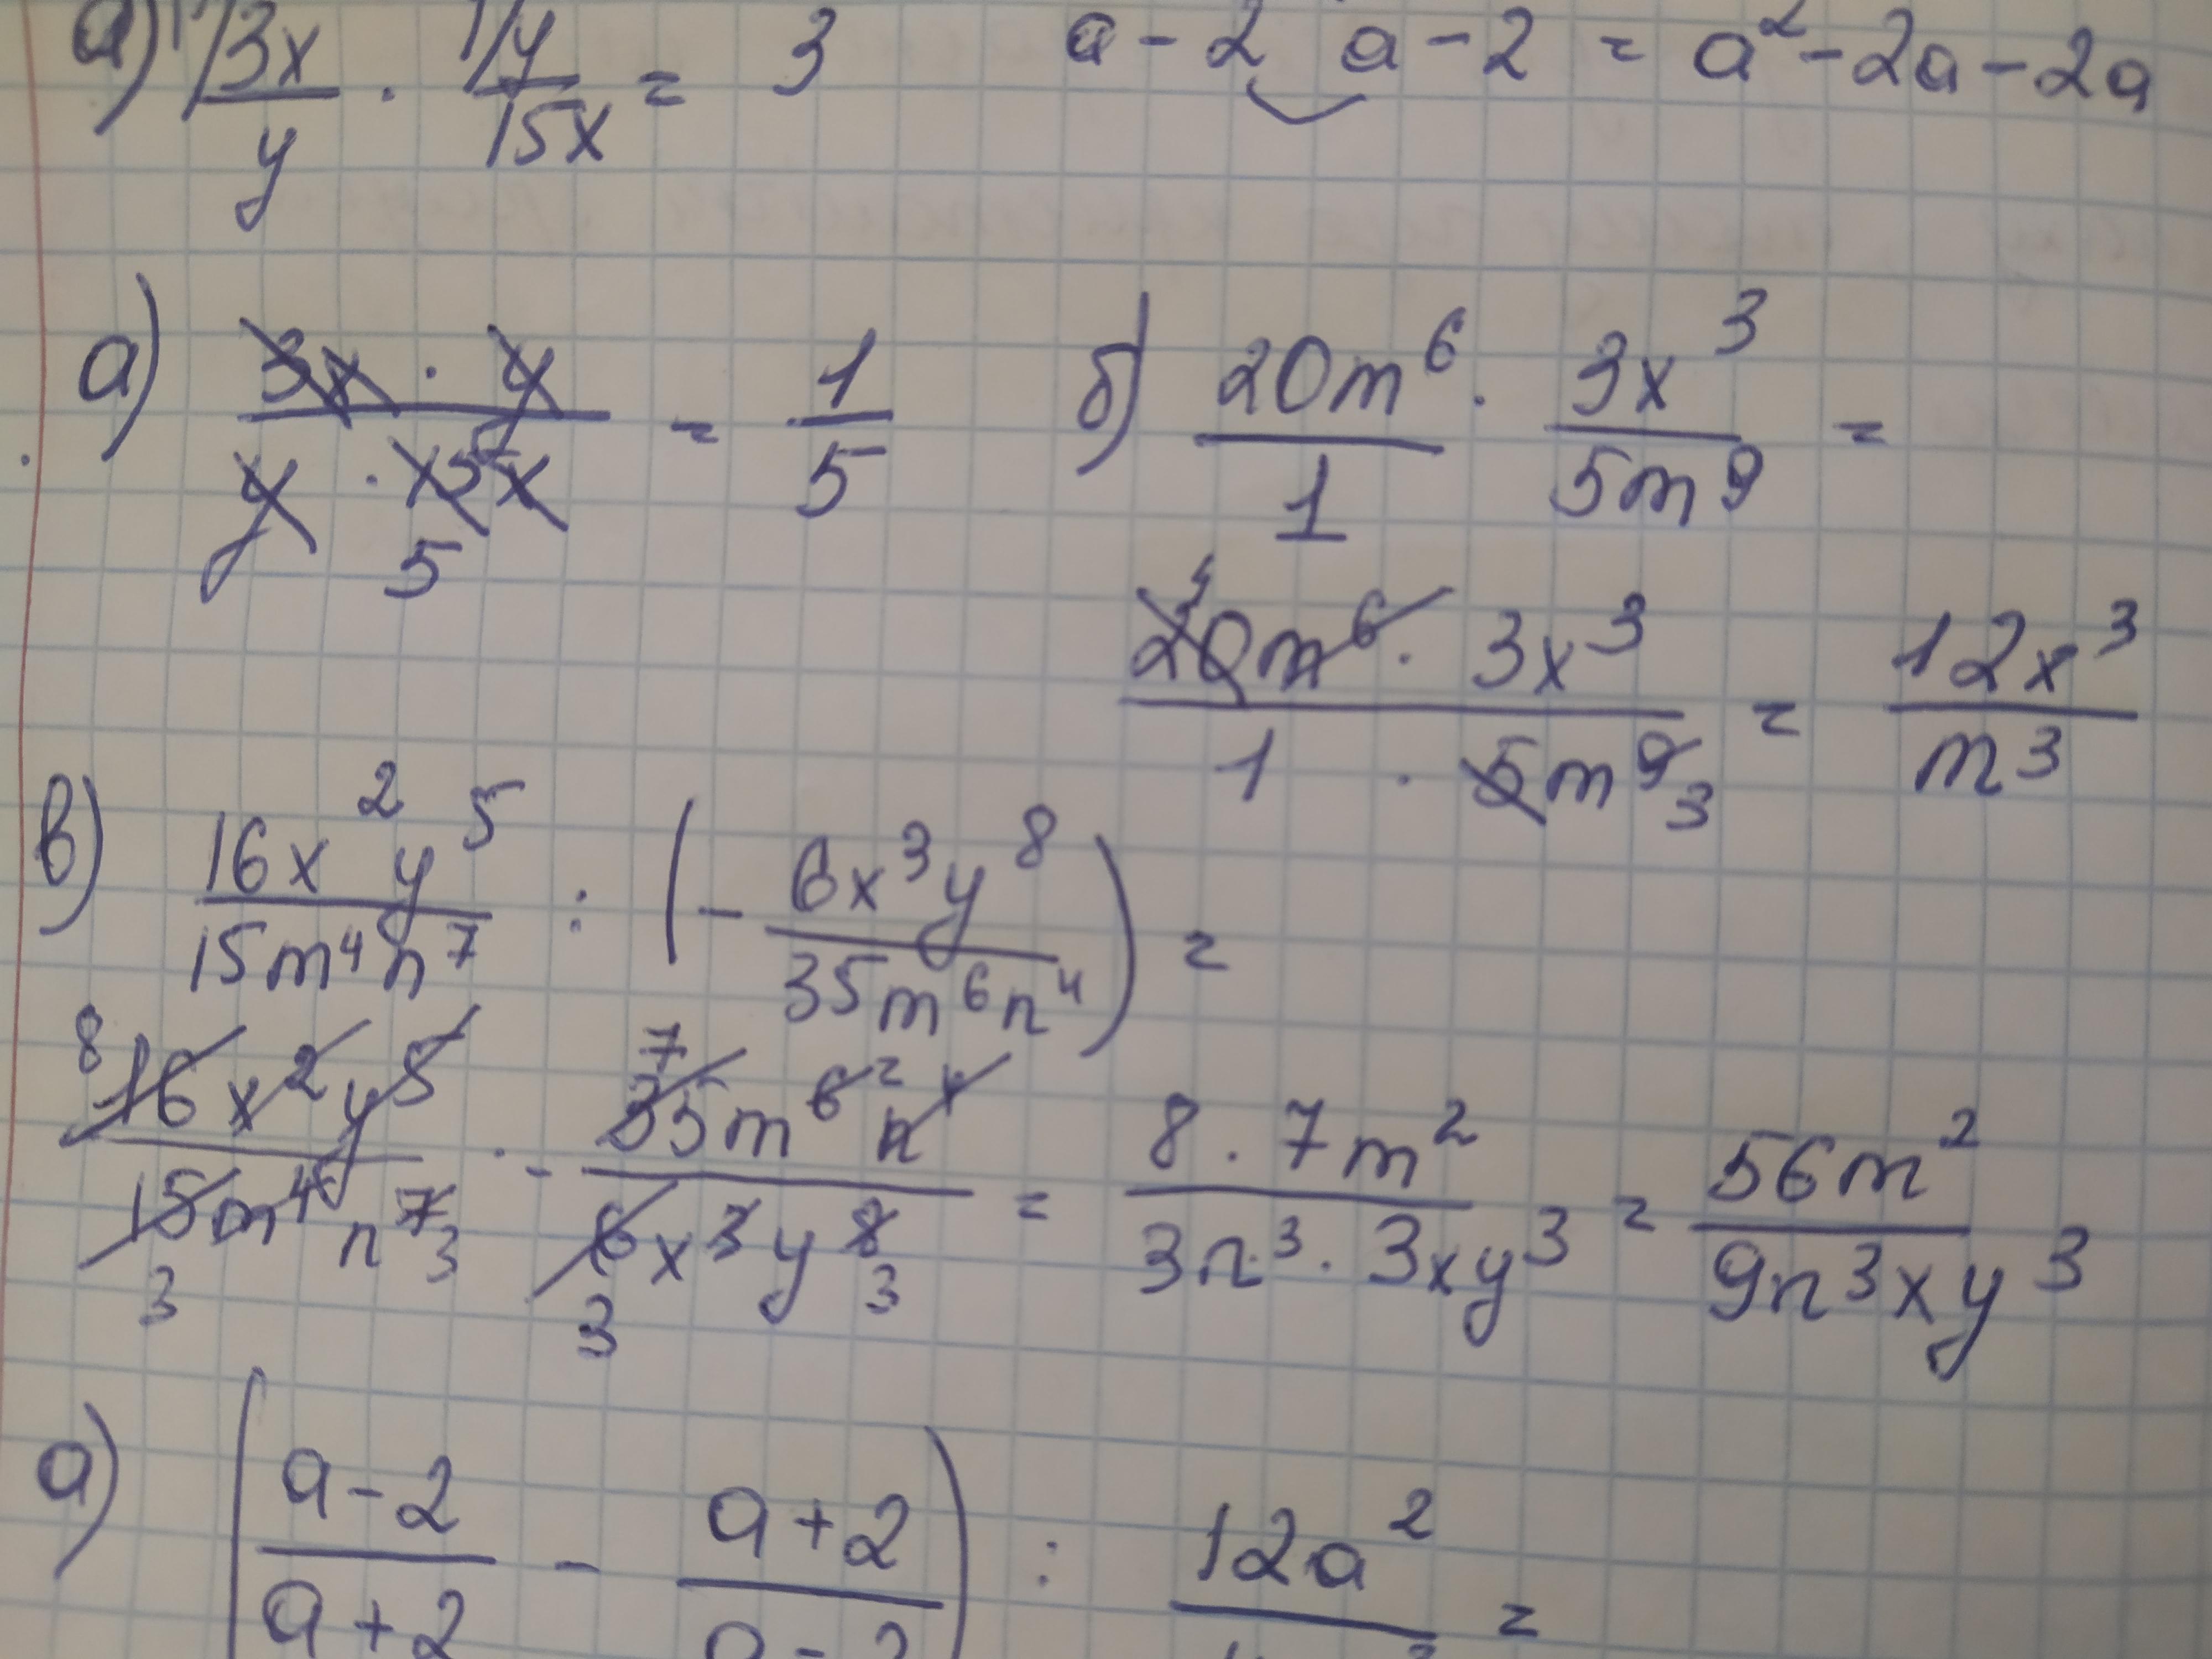 а) 3x/y · y/15x = 3
a - 2 a - 2 = a² - 2a - 2a
а) 3x · y / y · 15x = 1/5
5
б) 20m⁶/1 · 3x³/5m⁹ =
20m⁶ · 3x³ / 1 · 5m⁹ = 12x³/m³
3
в) 16x²y⁵/15m⁴n⁷ : (- 6x³y⁸/35m⁶n⁴) =
8 7 2
16x²y⁵/15m⁴n⁷ · - 35m⁶n⁴/6x³y⁸ = 8 · 7m²/3n³ · 3xy³ = 56m²/9n³xy³
3 3 3 3
а) (a - 2/a + 2 - a + 2/a - 2) : 12a² =